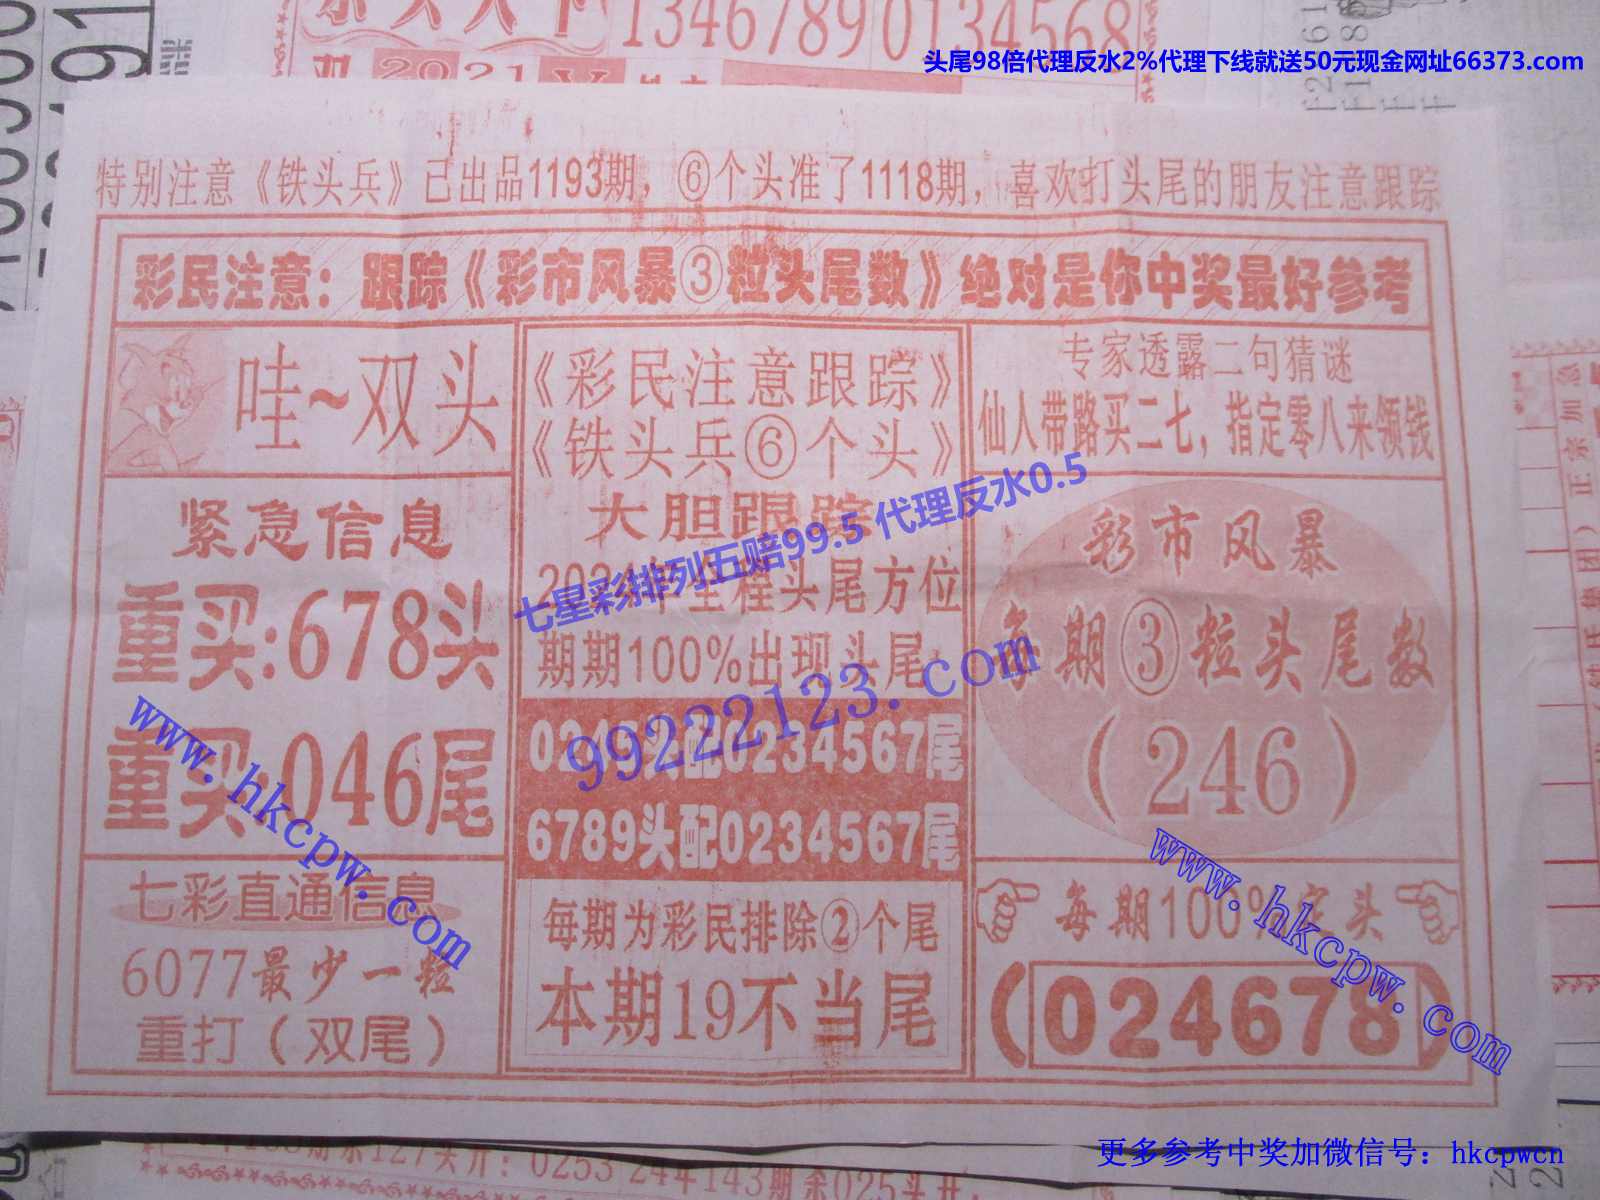 13467890134568
2021
头尾98倍代理反水2%代理下线就送50元现金网址66373.com
特别注意《铁头兵》己出品1193期，⑥个头准了1118期，喜欢打头尾的朋友注意跟踪
彩民注意：跟踪《彩市风暴③粒头尾数》绝对是你中奖最好参考
哇~双头
紧急信息
重买:678头
重买:046尾
七彩直通信息
6077最少一粒
重打（双尾）
《彩民注意跟踪》
《铁头兵⑥个头》
大胆跟踪
头尾方位
期期100%出现头尾
头配0234567尾
6789头配0234567尾
每期为彩民排除②个尾
本期19不当尾
专家透露二句猜谜
仙人带路买二七，指定零八来领钱
彩市风暴
每期③粒头尾数
（246）
每期100%定头
（024678）
七星彩排列五赔99.5 代理反水0.5
99222123.com
www.hkcpw.com
www.hkcpw.com
更多参考中奖加微信号：hkcpwcn